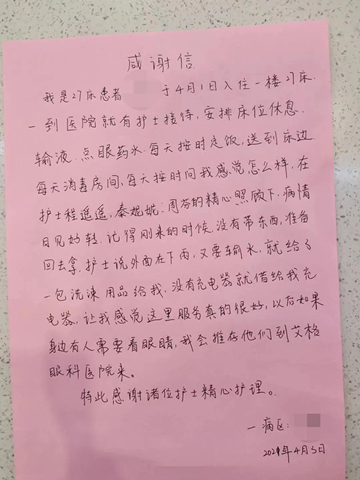 感谢信
我是27床患者 于4月1日入住一楼27床.
一到医院就有护士接待,安排床位休息.
输液.点眼药水.每天按时定饭,送到床边
每天消毒房间,每天按时间我感觉怎么样.在
护士程遥遥,秦妮妮.周芬的精心照顾下,病情
日见好转.记得刚来的时候.没有带东西,准备
回去拿,护士说外面在下雨,又要输水,就给了
一包洗漱用品给我.没有充电器就借给我充
电器.让我感觉这里服务真的很好,以后如果
身边有人需要看眼睛,我会推存他们到艾格
眼科医院来。
特此感谢诸位护士精心护理。
一病区:
2024年4月5日